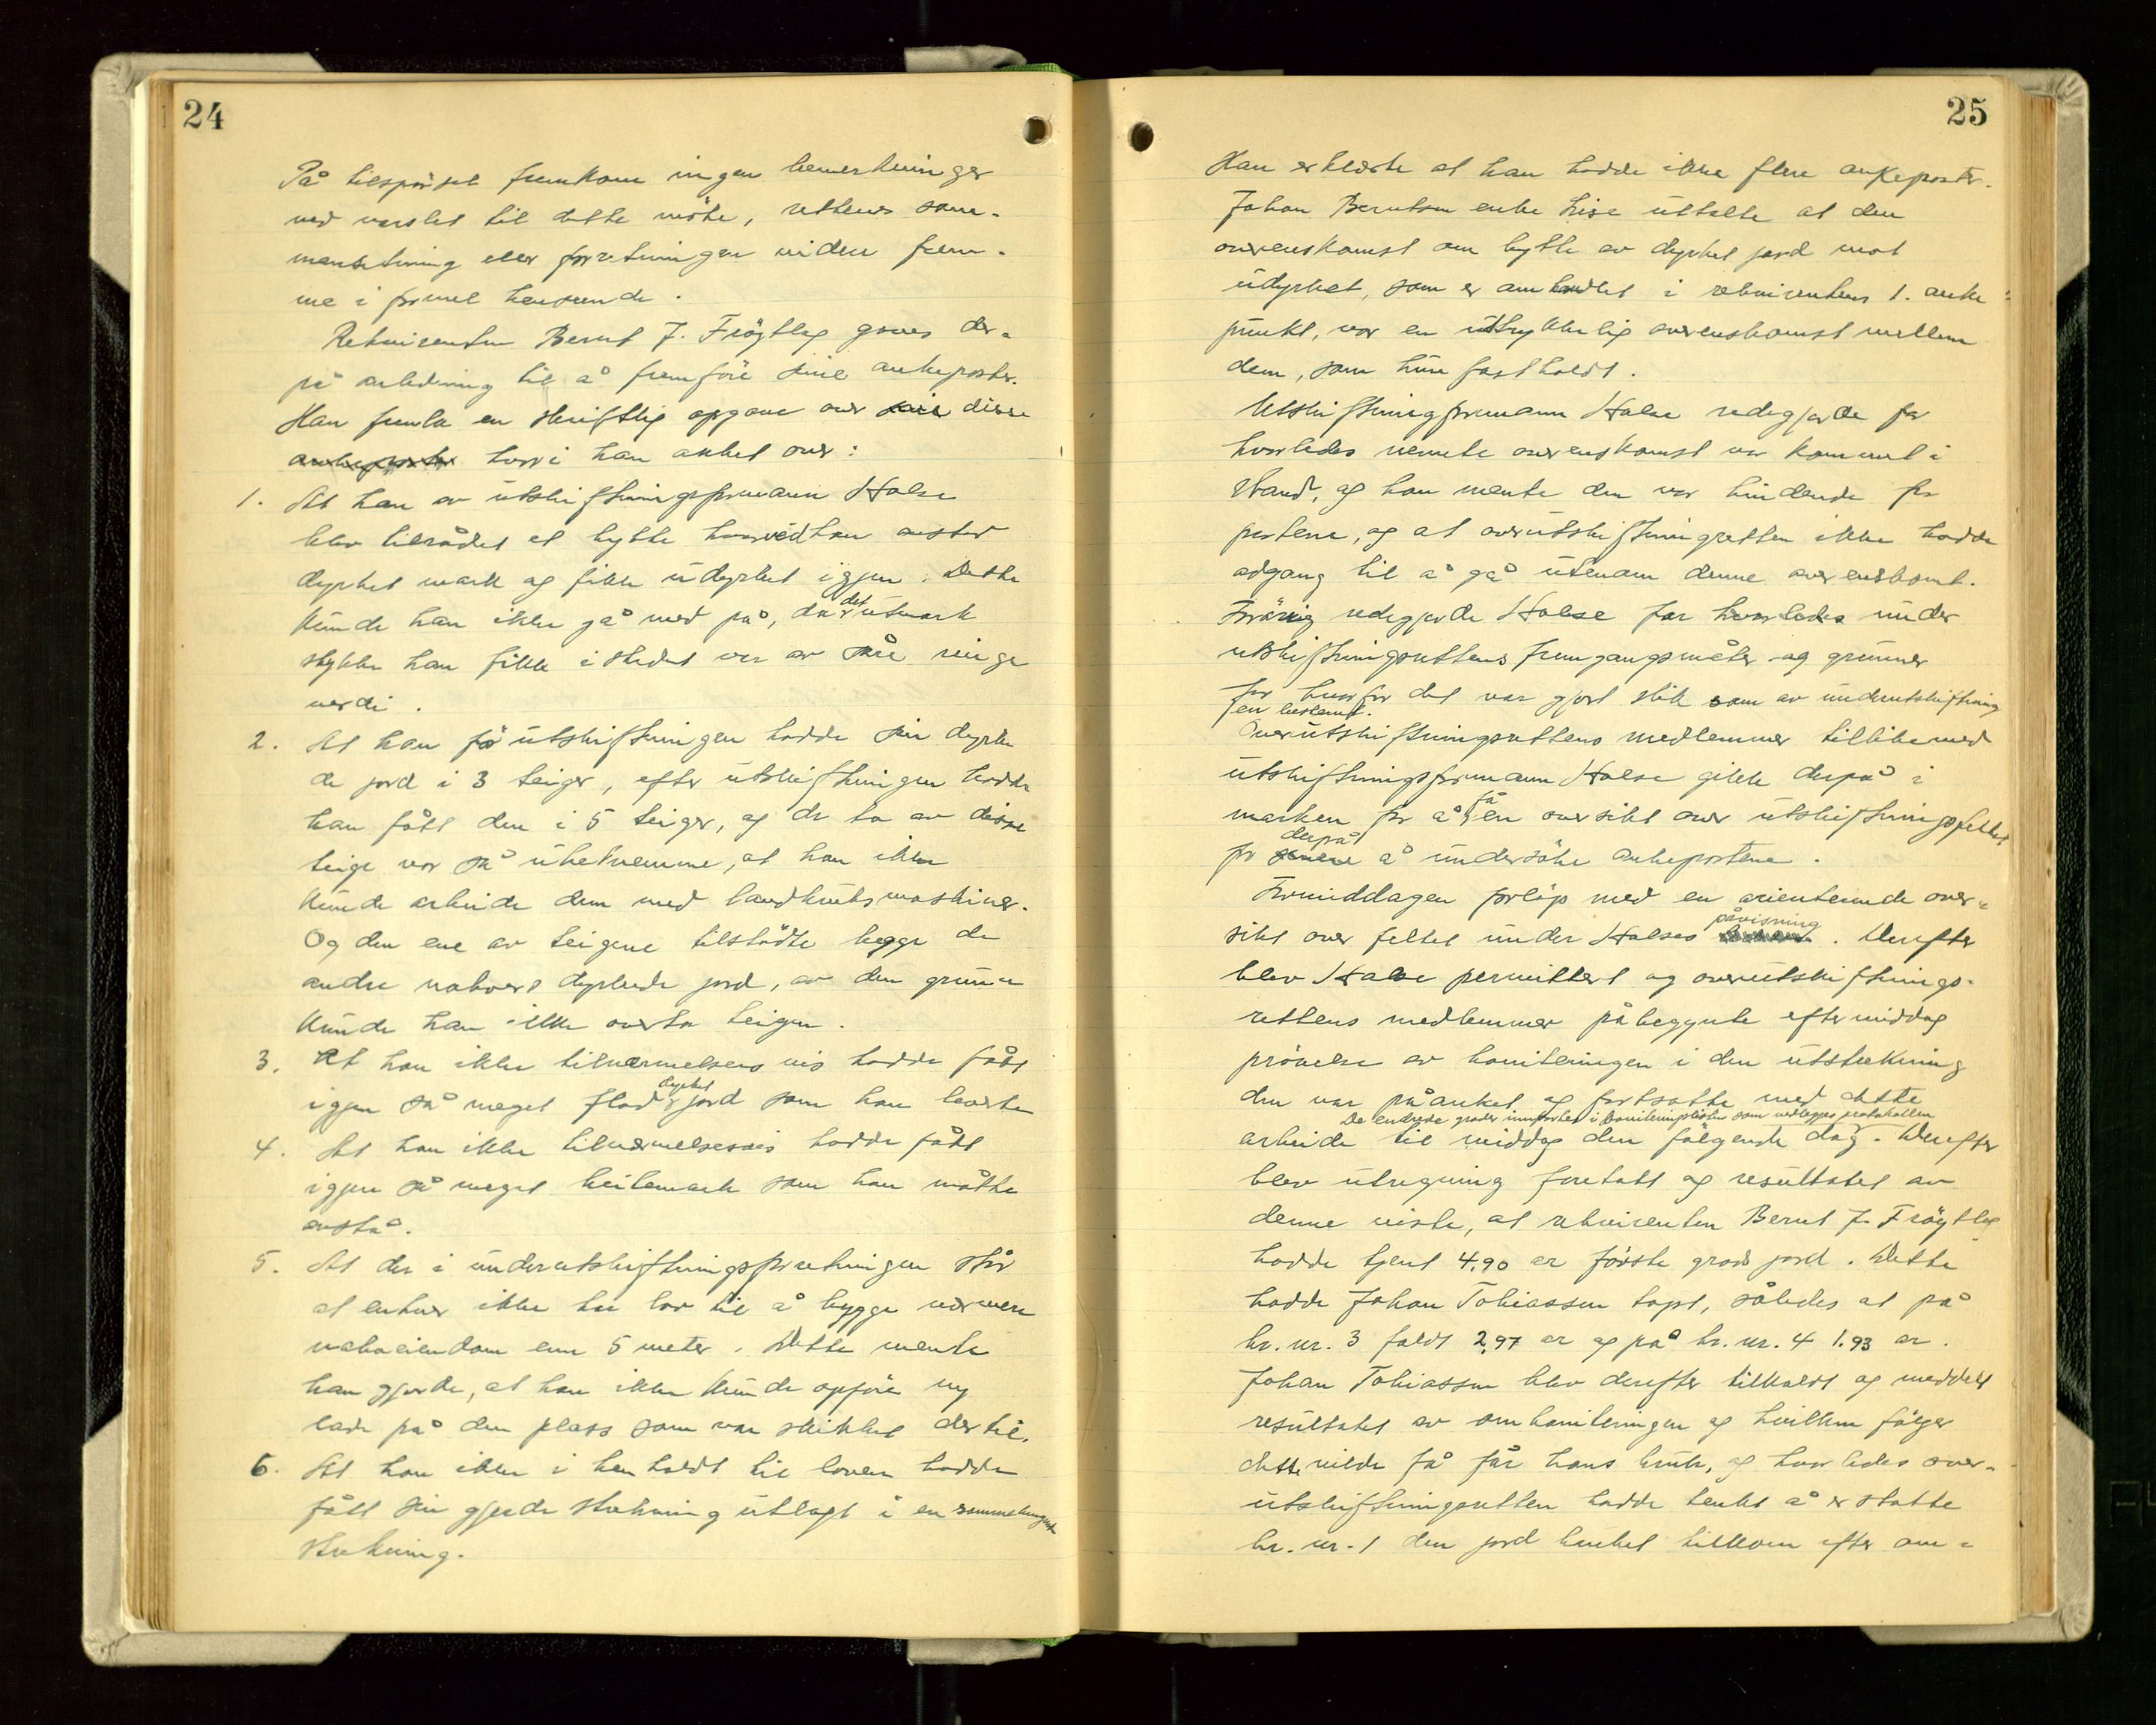 24
På tilspørsel fremkom ingen bemerkninger
ved varslet til dette møte, rettens sam-
mensetning eller forretningen videre frem-
me i formel henseende.
Rekvirenten Bernt J. Frøytlog gaves der-
på anledning til å fremføre sine ankeposter.
Han fremla en skriftlig opgave over sine disse
ankeposter hvori han anket over:
1. At han av utskiftningsformann Halse
blev tilrådet et bytte hvorved han avstod
dyrket mark og fikk udyrket igjen. Dette
kunde han ikke gå med på, da det utmark
stykke han fikk i stedet var av sæ ringe
verdi.
2. At han før utskiftningen hadde sin dyrke
de jord i 3 teiger, efter utskiftningen hadde
han fått den i 5 teiger, og de to av disse
teige var så ubekvemme, at han ikke
kunde arbeide dem med landbruksmaskiner.
Og den ene av teigene tilstødte begge de
andre naboers dyrkede jord, av den grunn
kunde han ikke overta teigen.
3. At han ikke tilnærmelsesvis hadde fått
igjen så meget flad dyrket jord som han leverte
4. At han ikke tilnærmelsesvis hadde fått
igjen så meget beitemark som han måtte
avstå.
5. At der i underutskiftningsforretningen står
at enhver ikke har lov til å bygge nærmere
naboeiendom enn 5 meter. Dette mente
han gjorde, at han ikke kunde opføre ny
lade på den plass som var skikket dertil.
6. At han ikke i henholdt til loven hadde
fått sin gjerde strekning utlagt i en sammenhengende
strekning.
25
Han erklærte at han hadde ikke flere ankeposter.
Johan Berntsen enke Lise uttalte at den
overenskomst om bytte av dyrket jord mot
udyrket, som er omhandlet i rekvirentens 1. anke
punkt, var en uttrykkelig overenskomst mellem
dem, som hun fastholdt.
Utskiftningsformann Halse redegjorde for
hvorledes nevnte overenskomst var kommet i
stand, og han mente den var bindende for
partene, og at overutskiftningsretten ikke hadde
adgang til å gå utenom denne overenskomst.
Forøvrig redegjorde Halse for hvorledes under
utskiftningsrettens fremgangsmåter og grunner
for hvorfor det var gjort slik som av underutskiftning
en bestemt.
Overutskiftningsrettens medlemmer tillikemed
utskiftningsformann Halse gikk derpå i
marken for å få en oversikt over utskiftningsfeltet
for senere derpå å undersøke ankepostene.
Formiddagen forløp med en orienterende over-
sikt over feltet under Halses påvisning. Derefter
blev Halse permittert og overutskiftnings-
rettens medlemmer påbegynte eftermiddag
prøvelse av boniteringen i den utstrekning
den var påanket og fortsatte med dette
De endrede grader innførtes i boniteringslisten som vedlegges protokollen
arbeide til middag den følgende dag. Derefter
blev utregning foretatt og resultatet av
denne viste, at rekvirenten Bernt J. Frøytlog
hadde tjent 4,90 ar første grads jord. Dette
hadde Johan Tobiassen tapt, således at på
br.nr. 3 faldt 2,97 ar og på br.nr. 4 1.93 ar.
Johan Tobiassen blev derefter tilkaldt og meddelt
resultatet av omboniteringen og hvilken følger
dette vilde få for hans bruk, og hvorledes over-
utskiftningsretten hadde tenkt å erstatte
br.nr. 1 den jord bruket tilkom efter om-